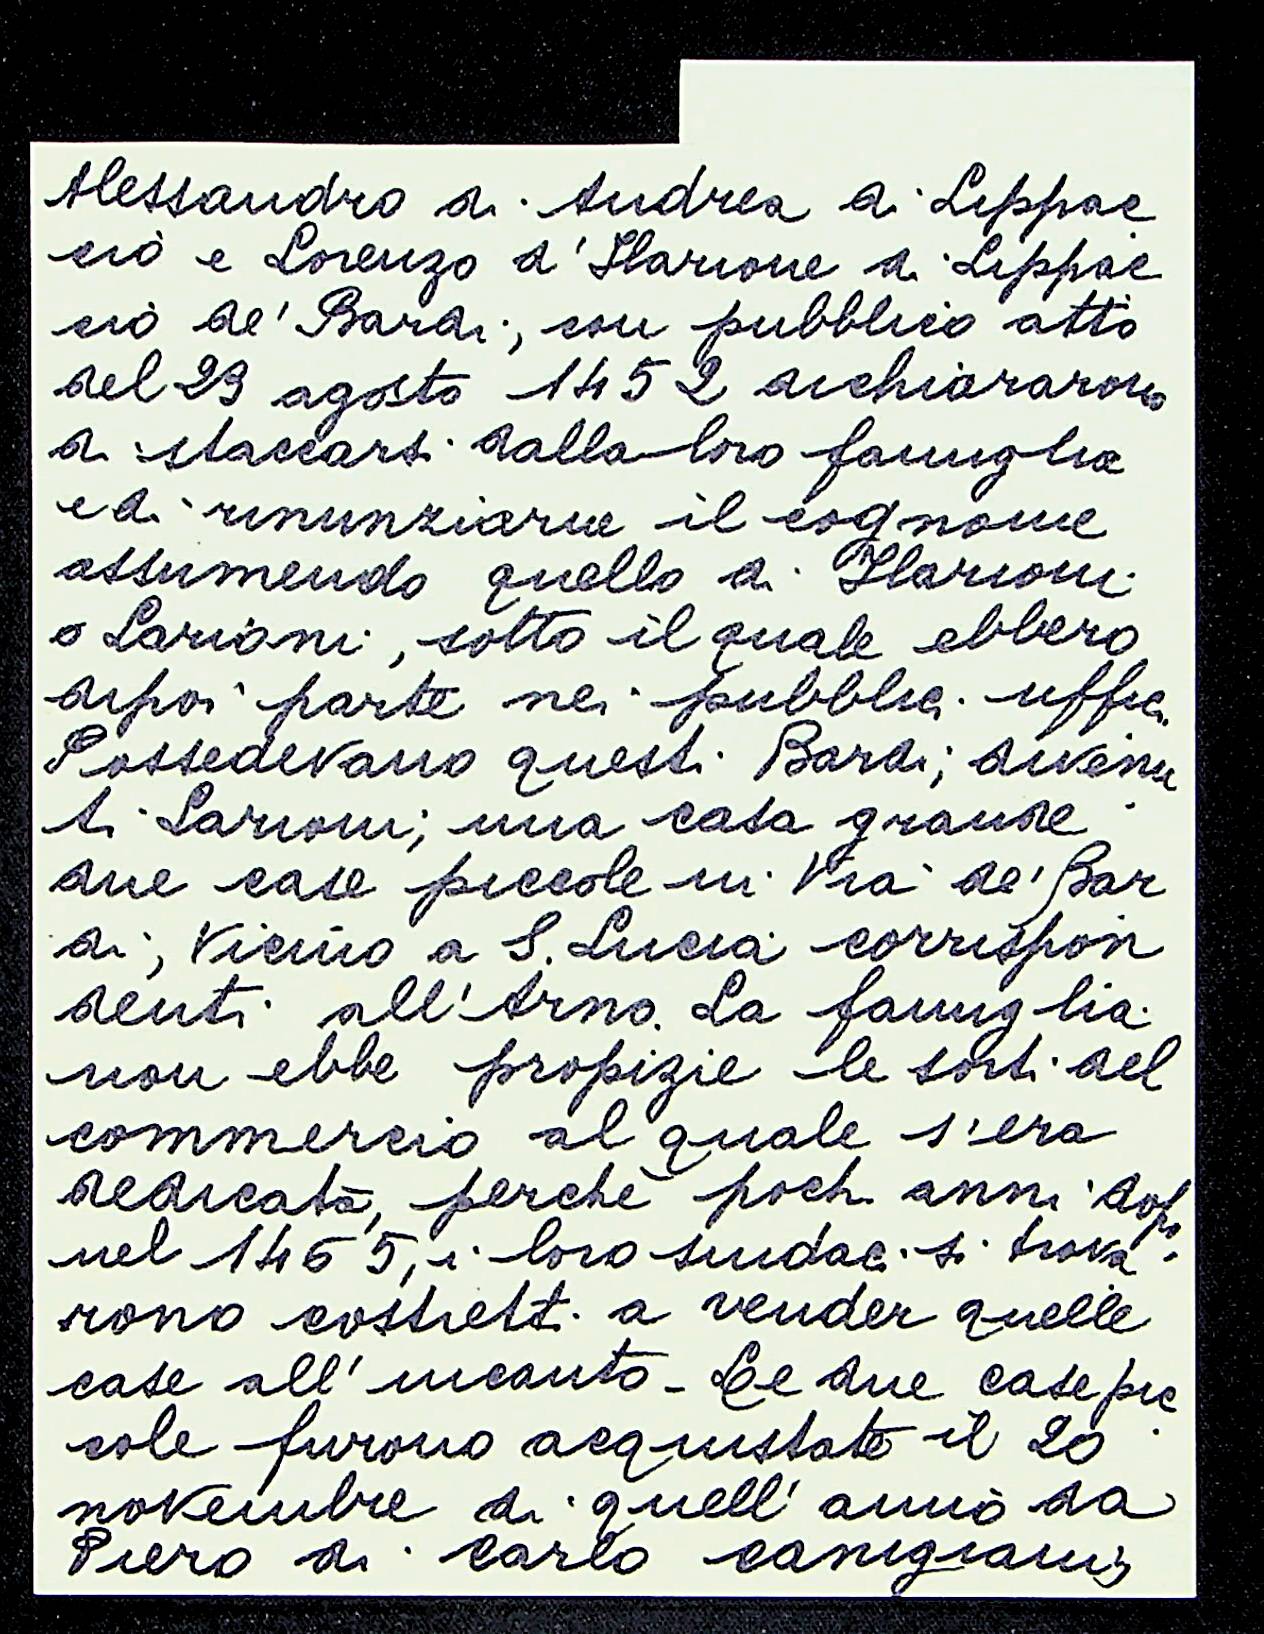 Alessandro di Andrea di Lippac
ciò e Lorenzo d'Ilarione di Lippac
ciò de' Bardi, con pubblico atto
del 29 agosto 1452 dichiararono
di staccarsi dalla loro famiglia
e di rinunziarne il cognome
assumendo quello di Ilarioni
o Larioni, sotto il quale ebbero
dipoi parte nei pubblici uffici.
Possedevano questi Bardi, divenu
ti Larioni, una casa grande
due case piccole in Via de' Bar
di, vicino a S. Lucia corrispon
denti all'Arno. La famiglia
non ebbe propizie le sorti del
commercio al quale s'era
dedicata, perchè pochi anni dopo
nel 1465, i loro sindaci si trova
rono costretti a vender quelle
case all'incanto - Le due case pic
cole furono acquistate il 20
novembre di quell'anno da
Piero di Carlo Canigiani,